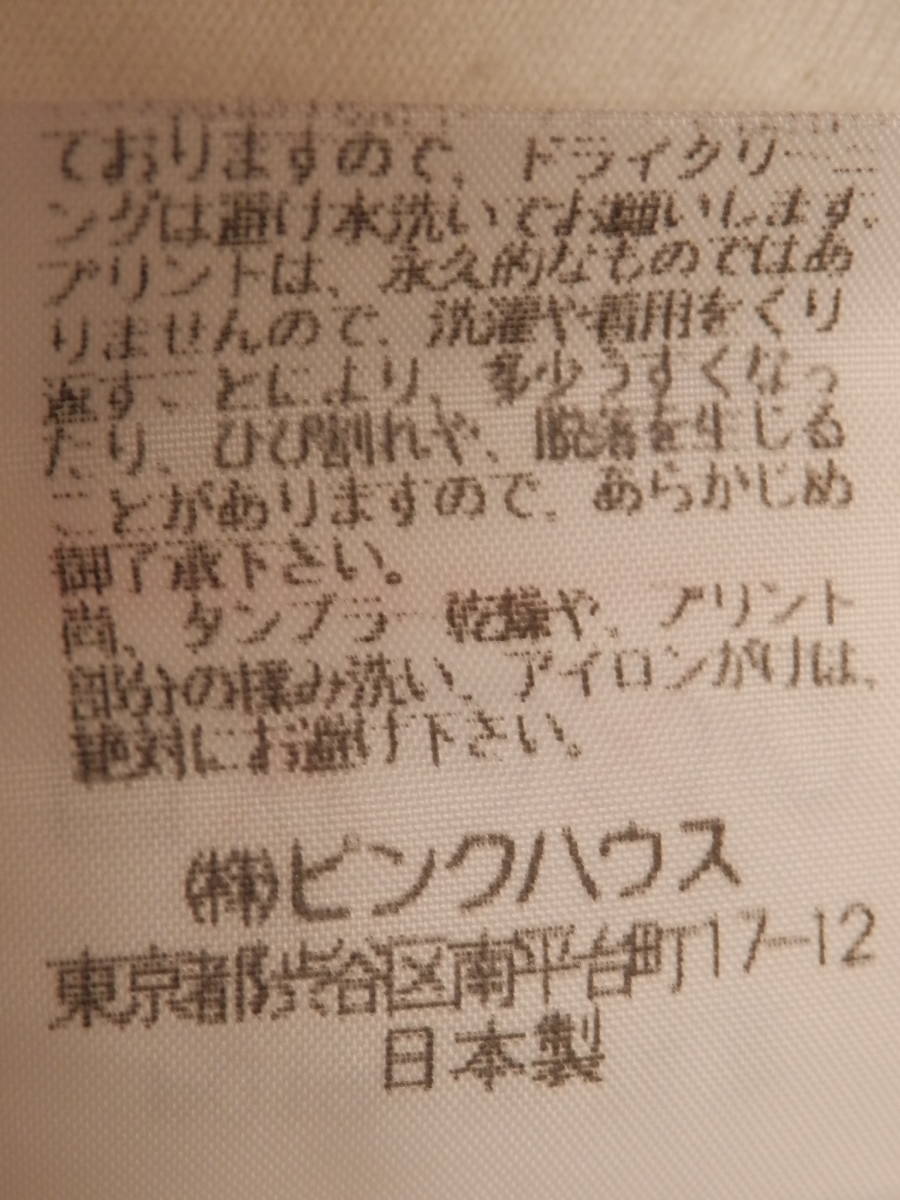 ておりますので、ドライクリーニ
ングは避け水洗いでお願いします。
プリントは、永久的なものではあ
りませんので、洗濯や着用をくり
返すことにより、多少うすくなっ
たり、ひび割れや、脱落を生じる
ことがありますので、あらかじめ
御了承下さい。
尚、タンブラー乾燥や、プリント
部分の揉み洗い、アイロンがけは、
絶対にお避け下さい。
㈱ピンクハウス
東京都渋谷区南平台町17-12
日本製